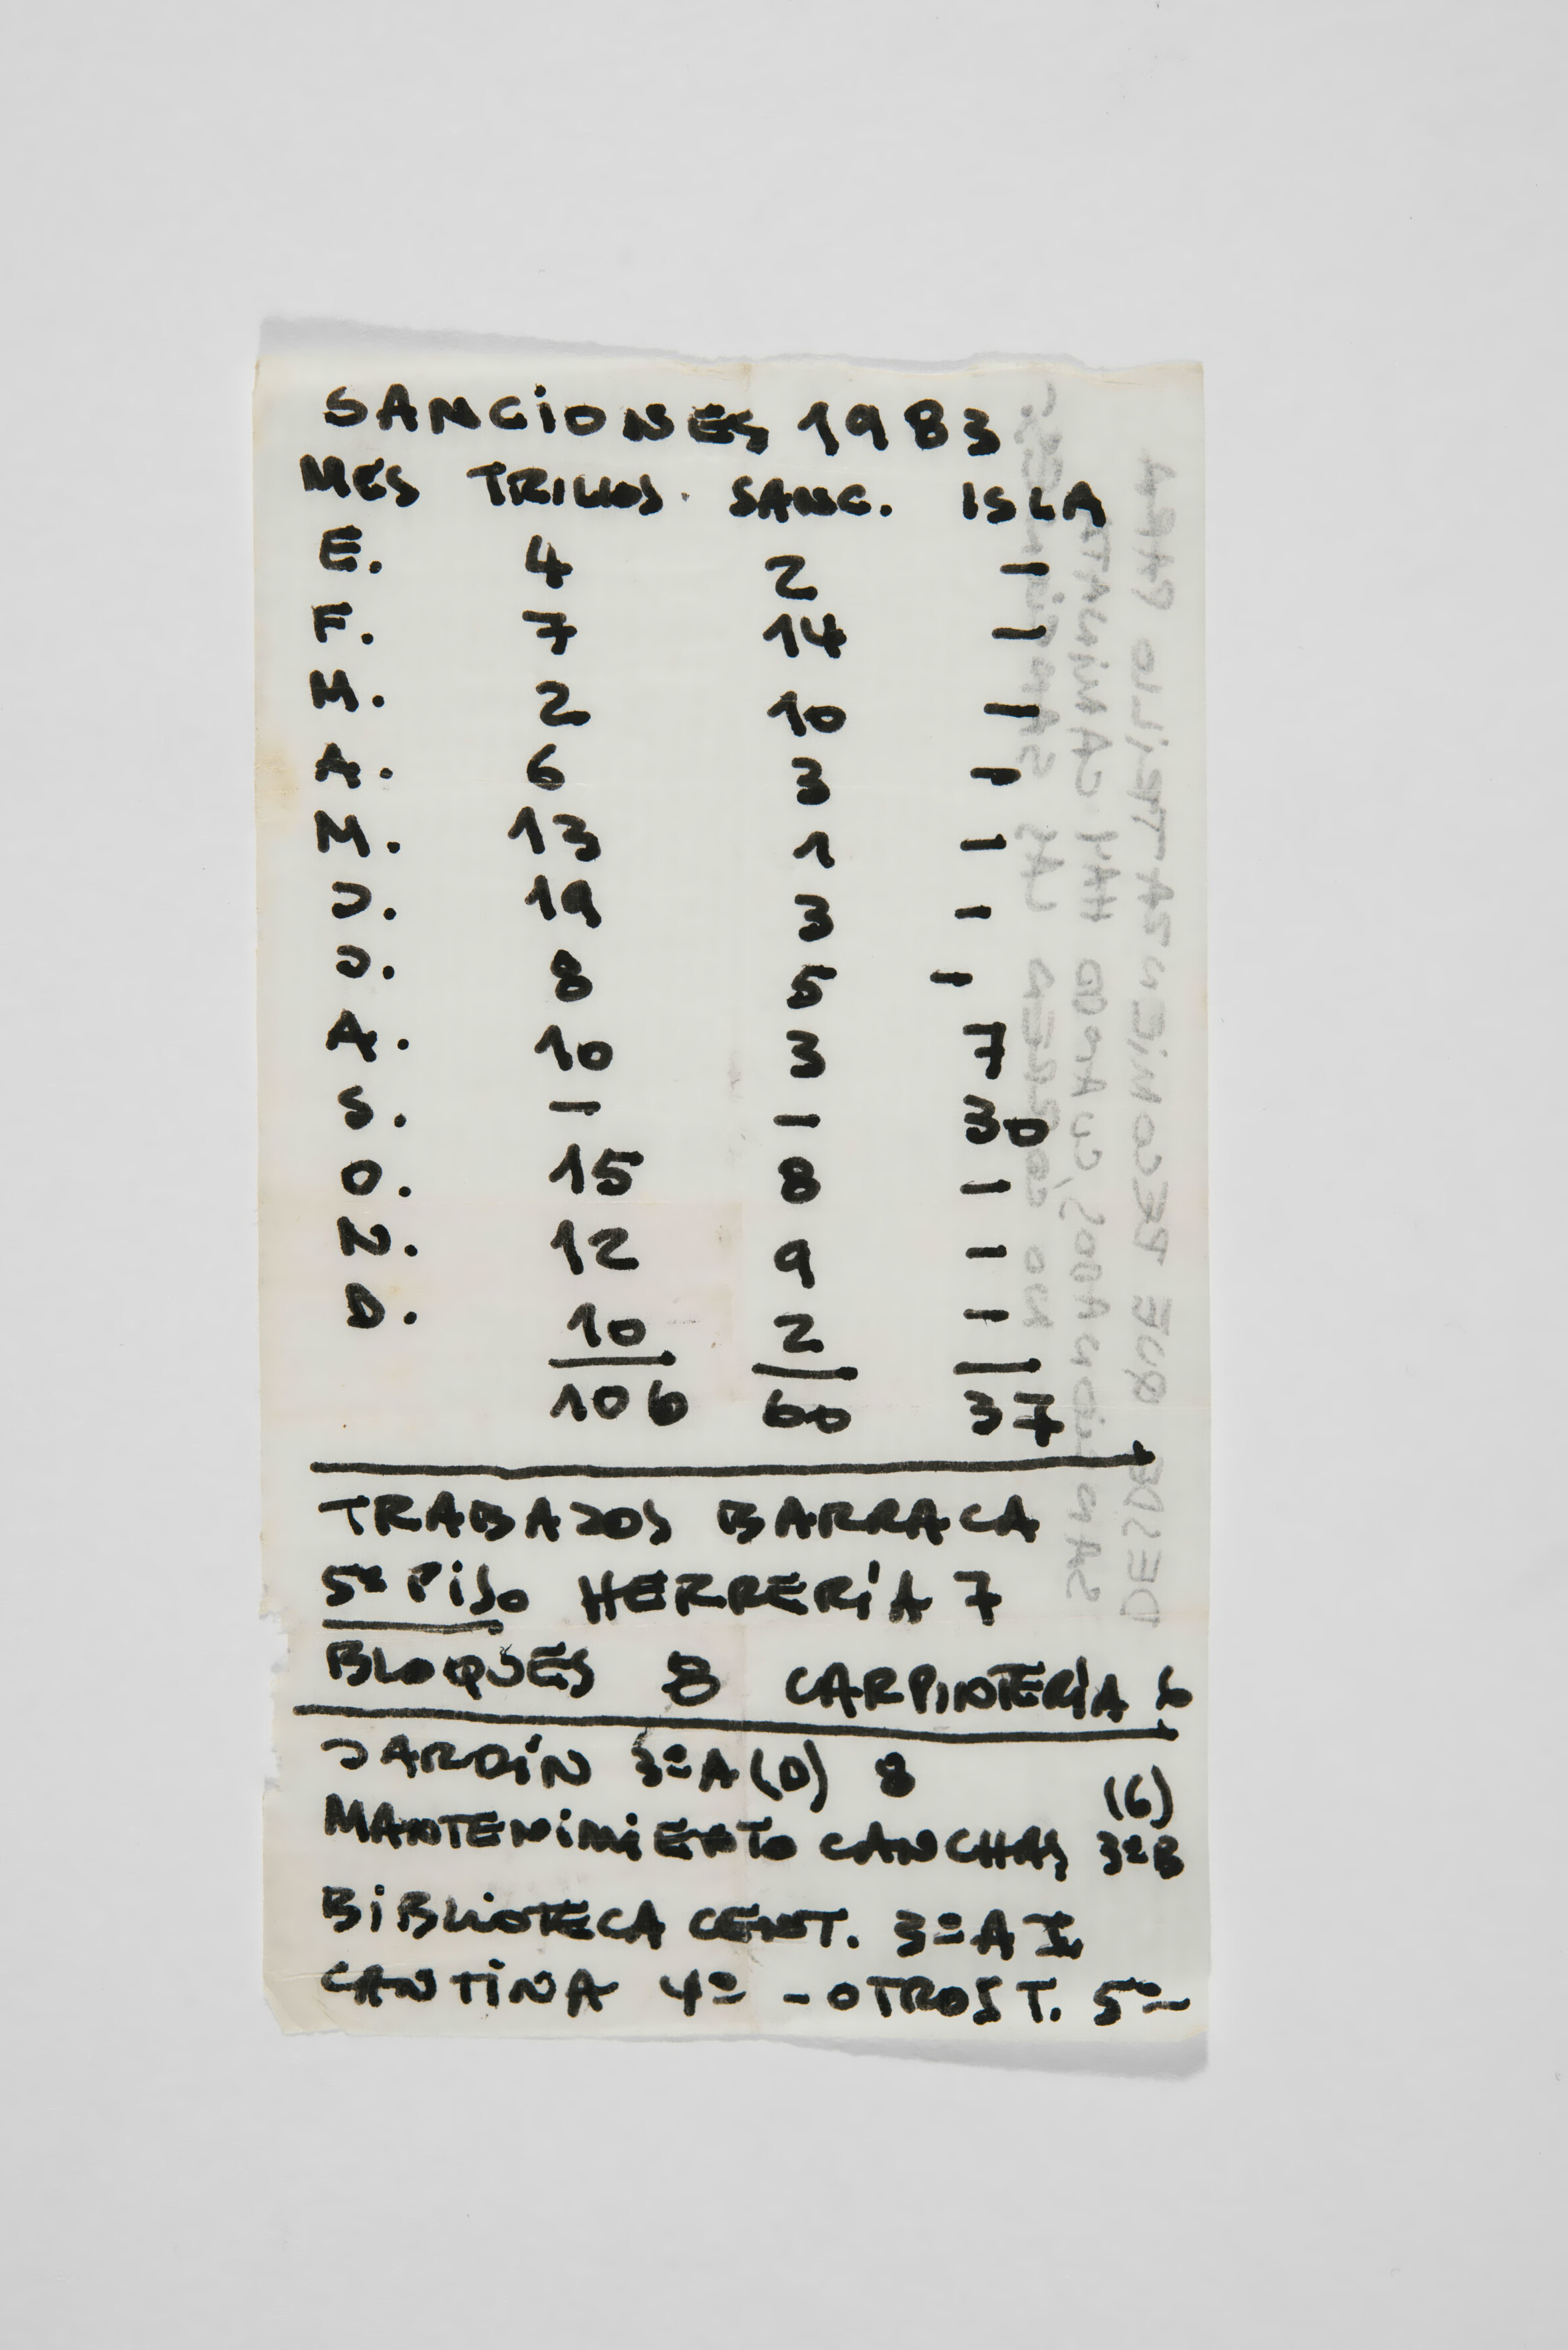 SANCIONES 1983
MES TRILLOS. SANC. ISLA
E. 4 2 -
F. 7 14 -
M. 2 10 -
A. 6 3 -
M. 13 1 -
J. 19 3 -
J. 8 5 -
A. 10 3 7
S. - - 30
O. 15 8 -
N. 12 9 -
D. 10 2 -
106 60 37
TRABAJOS BARRACA
5º PISO HERRERÍA 7
BLOQUES 8 CARPINTERÍA 6
JARDÍN 3ºA(D) 8 (6)
MANTENIMIENTO CANCHAS 3ºB
BIBLIOTECA CENT. 3ºA I
CANTINA 4º - OTROS T. 5º-